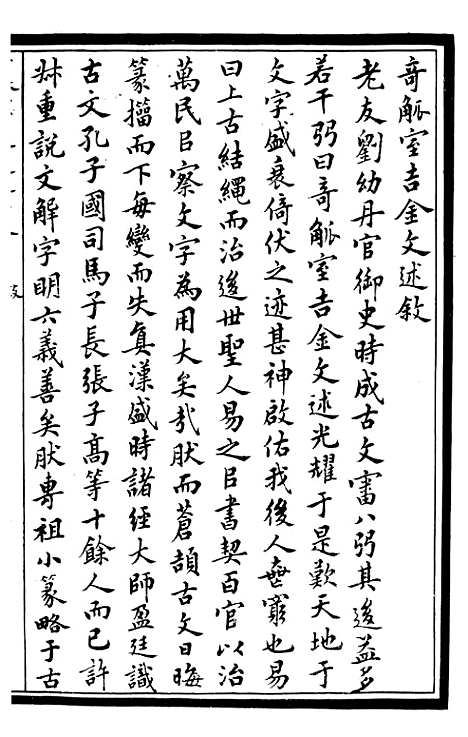 奇觚室吉金文述敘
老友劉幼丹官御史時成古文審八弜其後益多
若干弜曰奇觚室吉金文述光耀于是歎天地于
文字盛衰倚伏之迹甚神啟佑我後人無窮也易
曰上古結繩而治後世聖人易之㠯書契百官以治
萬民㠯察文字為用大矣哉肰而蒼頡古文日晦
篆籒而下每變而失真漢盛時諸經大師盈廷識
古文孔子國司馬子長張子高等十餘人而已許
尗重說文解字明六義善矣肰專祖小篆略于古